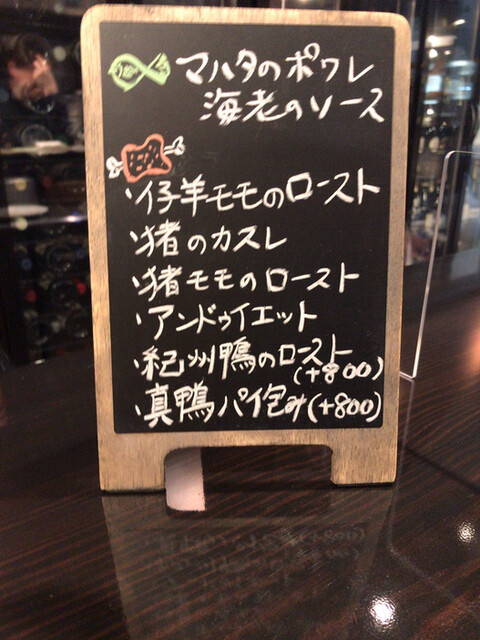 マハタのポワレ
海老のソース
・仔羊モモのロースト
・猪のカスレ
・猪モモのロースト
・アンドゥイエット
・紀州鴨のロースト
(+800)
・真鴨パイ包み(+800)